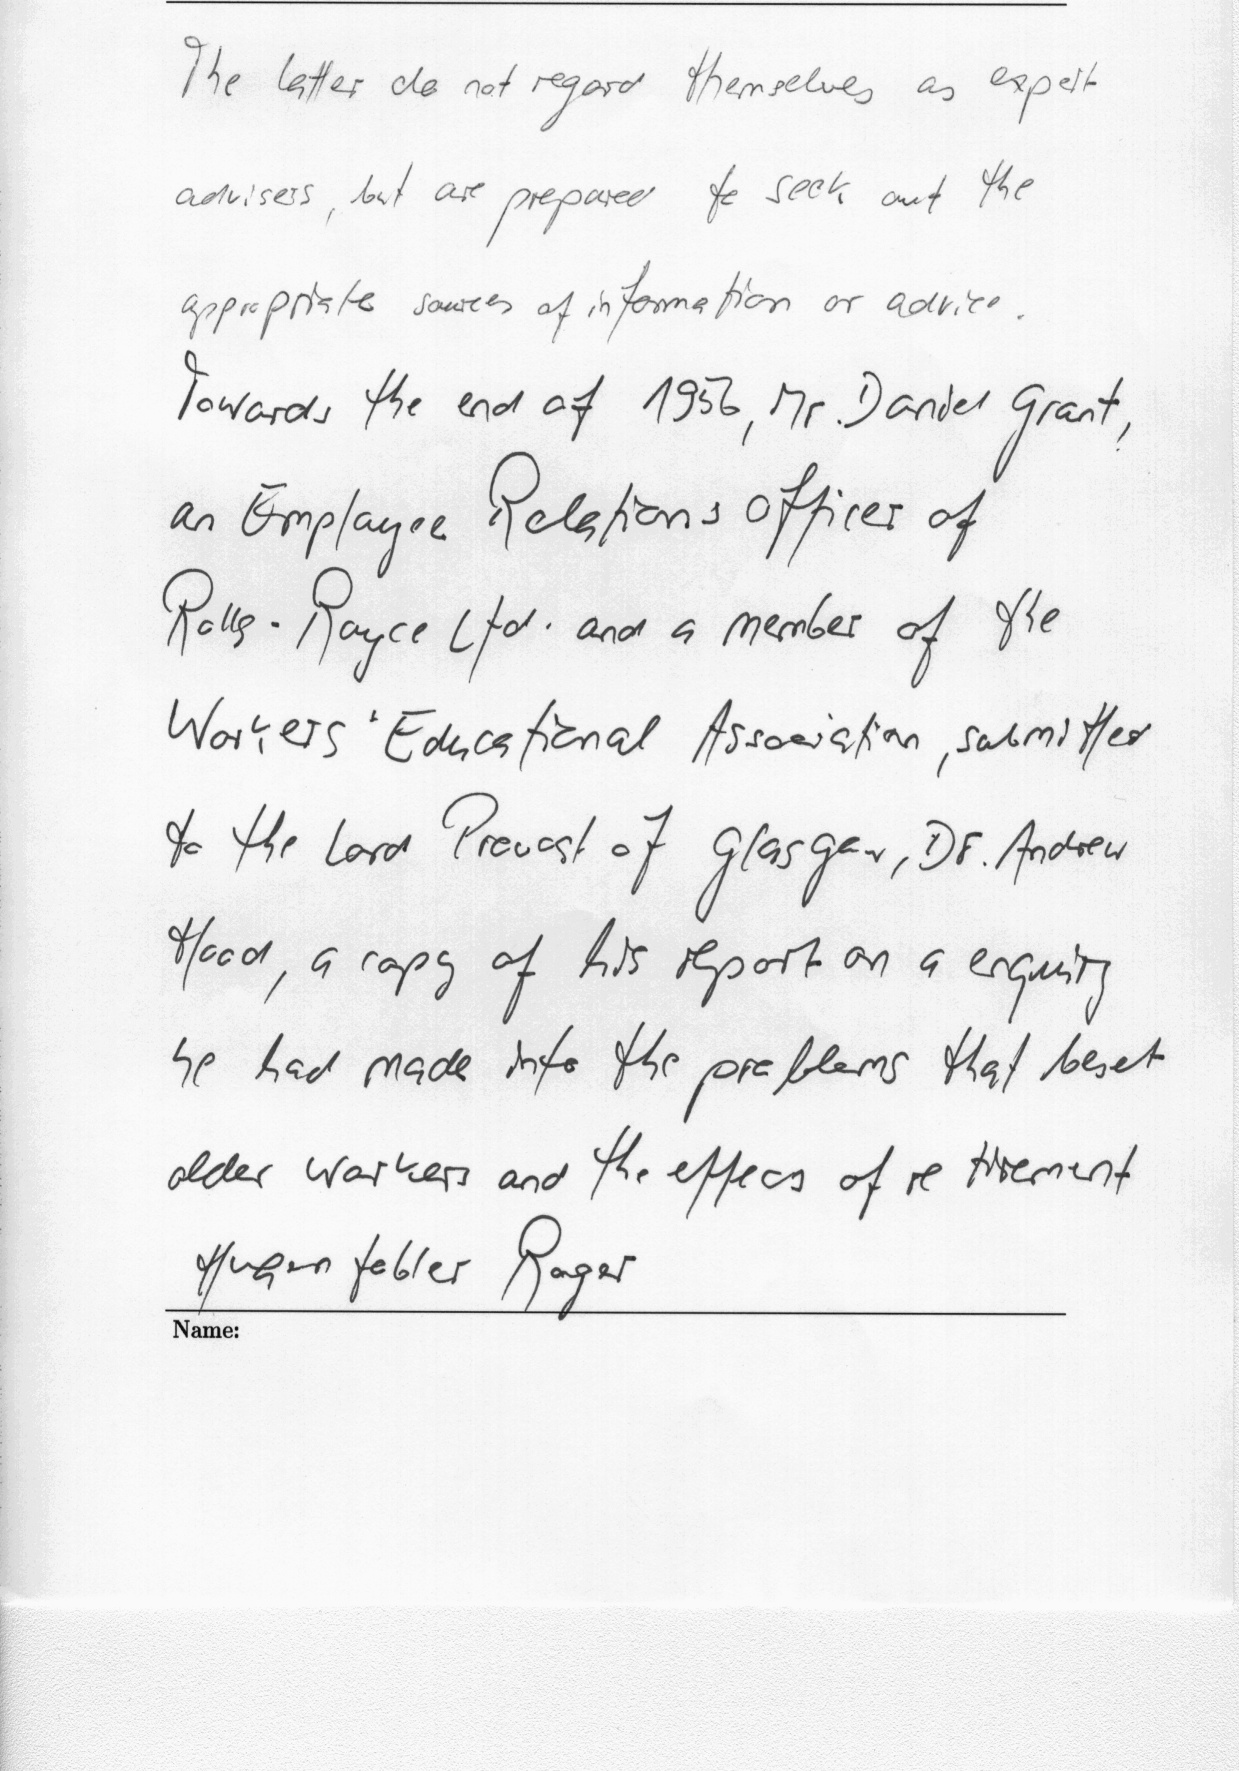 The latter do not regard themselves as expert
advisers, but are prepared to seek out the
appropriate sources of information or advice.
Towards the end of 1956, Mr. Daniel Grant,
an Employee Relations Officer of
Rolls-Royce Ltd. and a member of the
Workers' Educational Association, submitted
to the Lord Provost of Glasgow, Dr. Andrew
Hood, a copy of his report on a enquiry
he had made into the problems that beset
older workers and the effecs of retirement
Roger
Name: